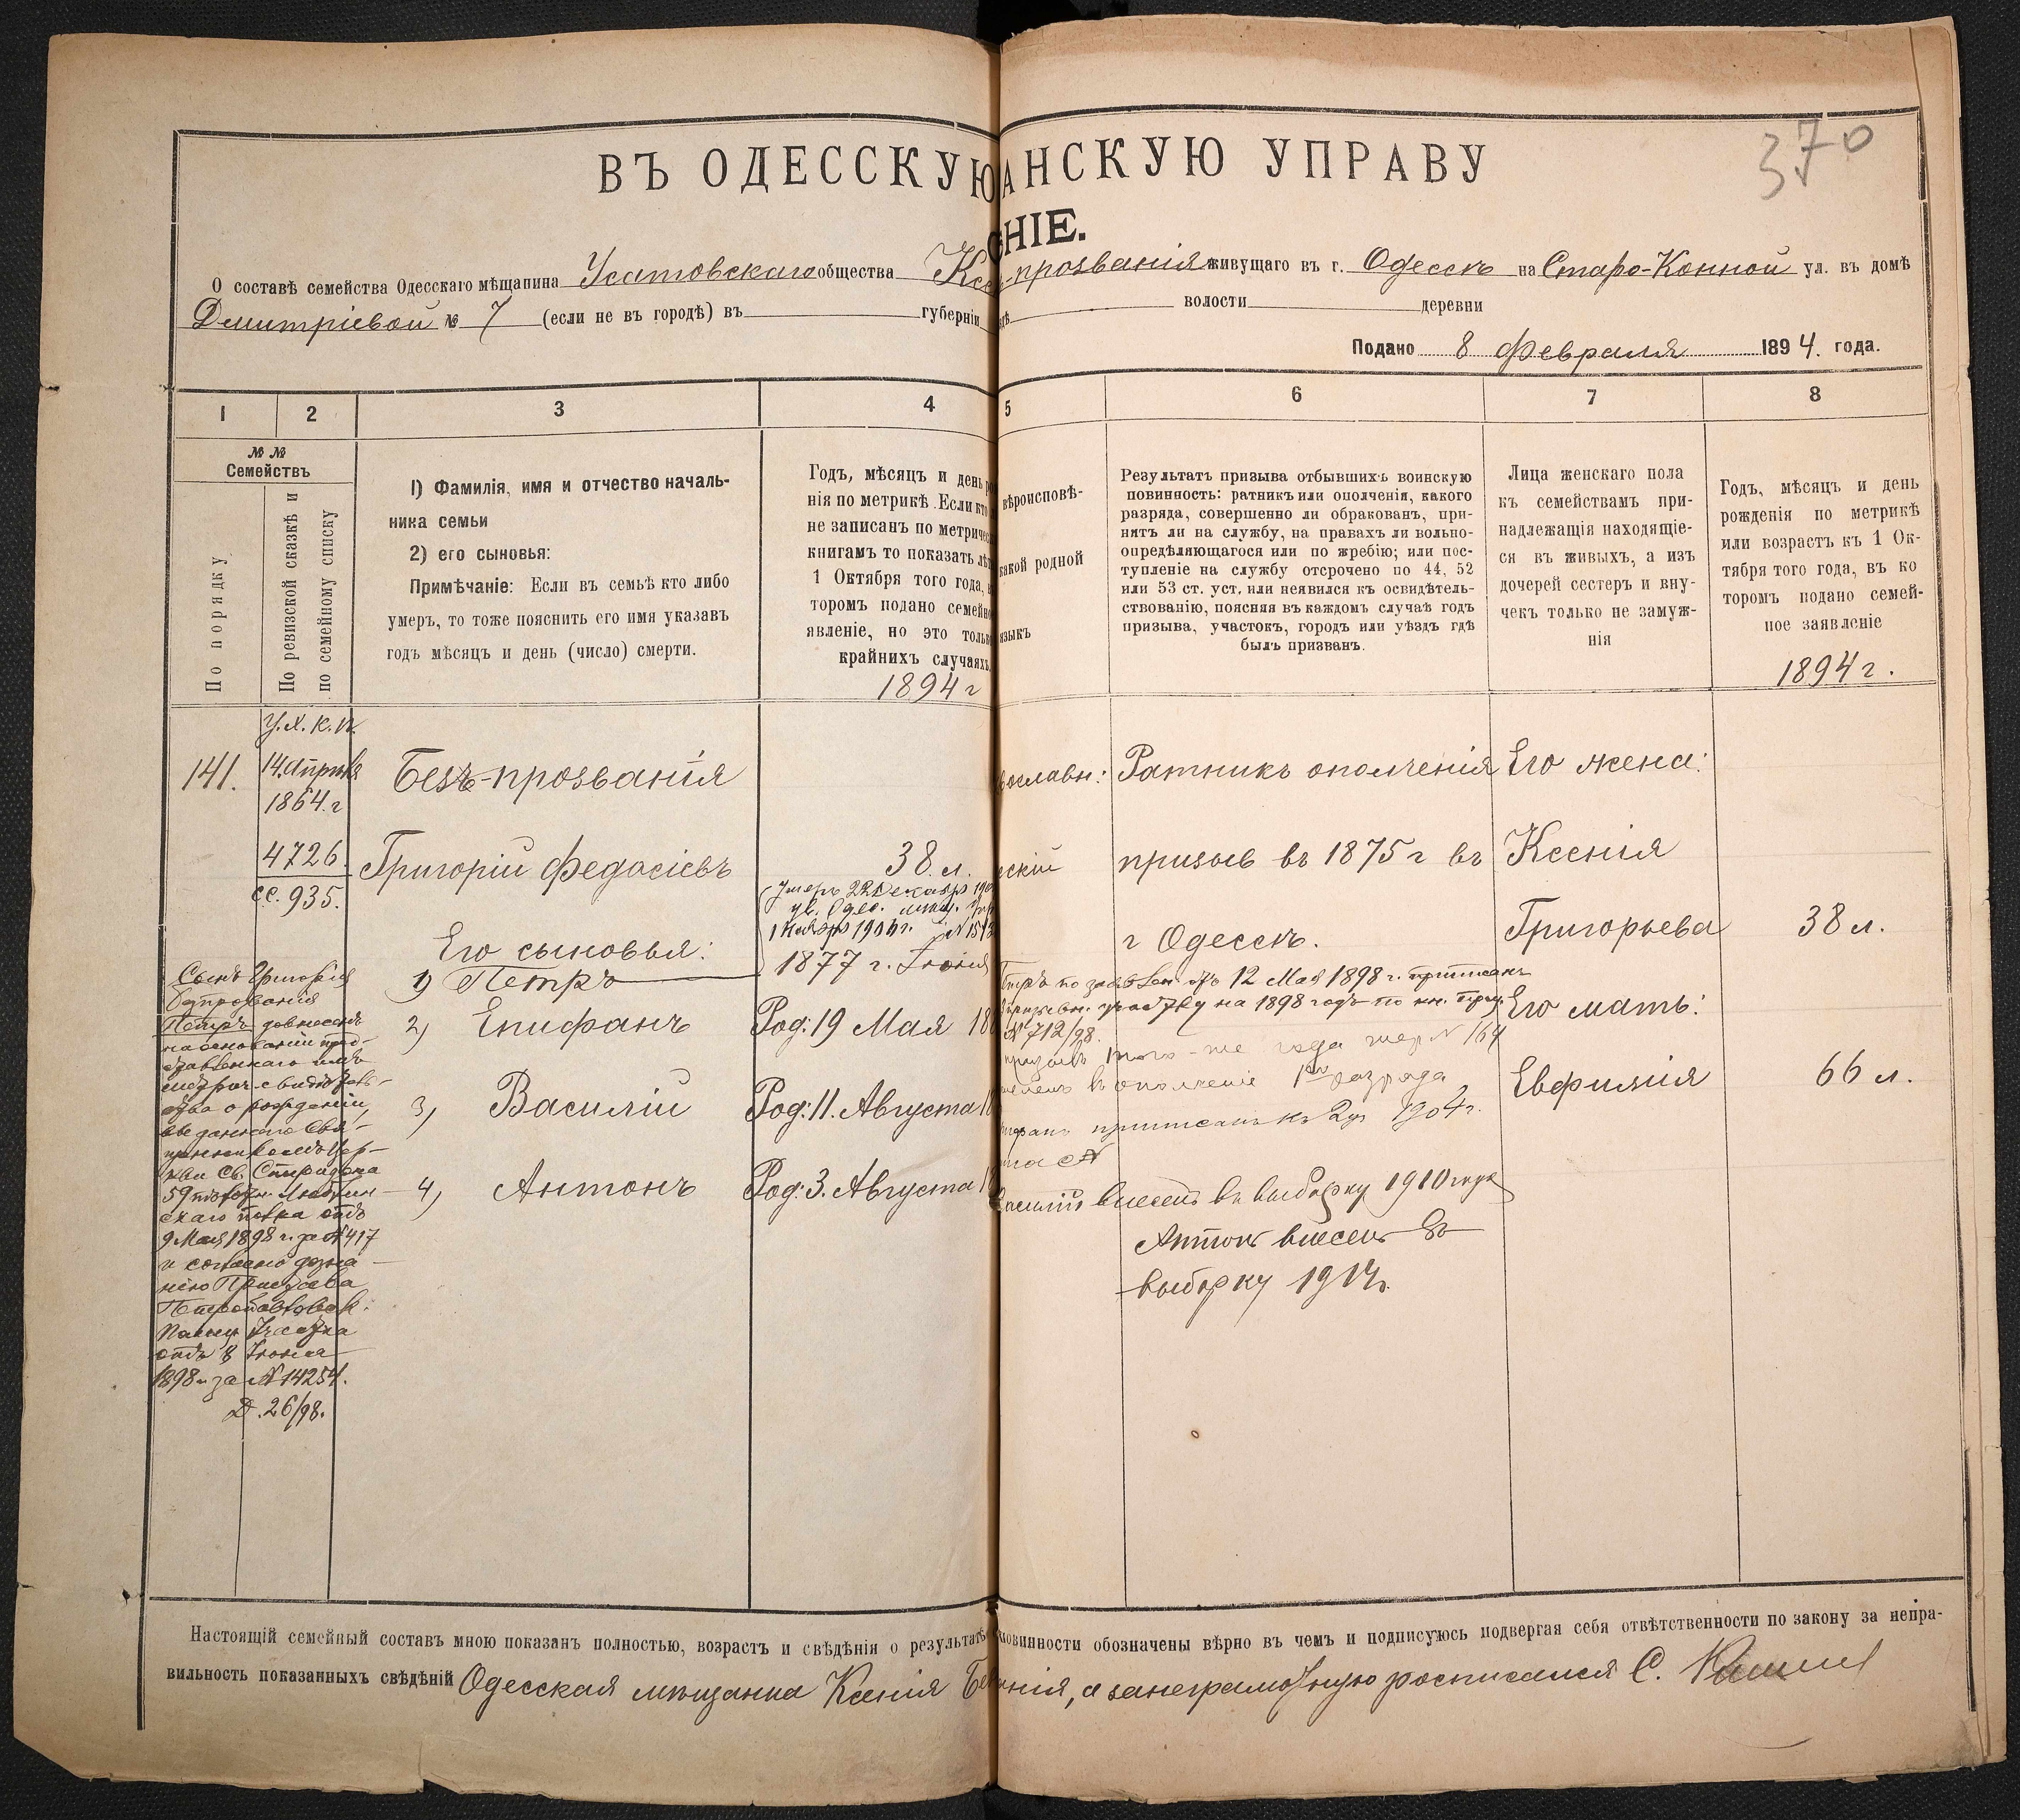 370
ВЪ ОДЕССКУЮ АНСКУЮ УПРАВУ
НІЕ.
О составѣ семейства Одесскаго мѣщанина Усатовскаго общества прозванія живущаго въ г. Одессѣ на Старо-Конной ул. въ домѣ
Дмитріевой № 7 (если не въ городѣ) въ губерніи волости деревни
Подано 8 Февраля 1894. года.
1 2 3 4 5 6 7 8
№ №
Семействъ
По порядку
По ревизской сказкѣ и
по семейному списку
1) Фамилія, имя и отчество началь-
ника семьи
2) его сыновья:
Примѣчаніе: Если въ семьѣ кто либо
умеръ, то тоже пояснить его имя указавъ
годъ мѣсяцъ и день (число) смерти.
Годъ, мѣсяцъ и день
нія по метрикѣ. Если кто
не записанъ по метричес
книгамъ то показать лѣт
1 Октября того года,
торомъ подано семейно
явленіе, но это только
крайнихъ случаяхъ.
1894 г
вѣроисповѣ-
какой родной
языкъ
Результатъ призыва отбывшихъ воинскую
повинность: ратникъ или ополченія, какого
разряда, совершенно ли обракованъ, при-
нятъ ли на службу, на правахъ ли вольно-
опредѣляющагося или по жребію; или пос-
тупленіе на службу отсрочено по 44, 52
или 53 ст. уст. или неявился къ освидѣтель-
ствованію, поясняя въ каждомъ случаѣ годъ
призыва, участокъ, городъ или уѣздъ гдѣ
былъ призванъ.
Лица женскаго пола
къ семействамъ при-
надлежащія находящіе-
ся въ живыхъ, а изъ
дочерей сестеръ и вну-
чекъ только не замуж-
нія
Годъ, мѣсяцъ и день
рожденія по метрикѣ
или возрастъ къ 1 Ок-
тября того года, въ ко
торомъ подано семей-
ное заявленіе
1894 г.
141. 14. Апрѣля Безъ-прозванія вославн: Ратникъ ополченія Его жена:
1864. г
4726. Григорій Федосіевъ 38. л. скій призыв въ 1875 г въ Ксенія
сс. 935.
Умеръ 22 Декабря
г Одессѣ. Григорьева 38 л.
Его сыновья:
1) Петръ 1877 г. Іюнія
12 Мая 1898 г. приписанъ
участку на 1898 годъ по
№ 712/98.
2) Епифанъ Род: 19 Мая Его мать:
того-же года жер № 164
ополченіе 1го разряда
3) Василій Род: 11. Августа Евфимія 66 л.
приписанъ къ 1904 г.
4) Антонъ Род: 3. Августа
внесенъ въ выборку 1910 года
Антонъ внесенъ въ
выборку 191
Сынъ Григорія
Безпрозванія
Петръ довнесенъ
на основаніи пред-
ставленнаго имъ
метрич. свидѣтель-
ства о рожденіи,
выданнаго Свя-
щенникомъ Цер-
кви Св. Спиридона
59 пѣхотн. Люблин-
скаго полка отъ
9 Мая 1898 г. за № 417
и согласно дозна-
нію Пристава
Петропавловск:
Полиц. Участка
отъ 8 Іюня
1898 г за № 14254.
Д. 26/98.
Настоящій семейный составъ мною показанъ полностью, возрастъ и свѣдѣнія о результатѣ повинности обозначены вѣрно въ чемъ и подписуюсь подвергая себя отвѣтственности по закону за непра-
вильность показанныхъ свѣдѣній Одесская мѣщанка Ксенія Без анія, а занеграмотную росписался С.